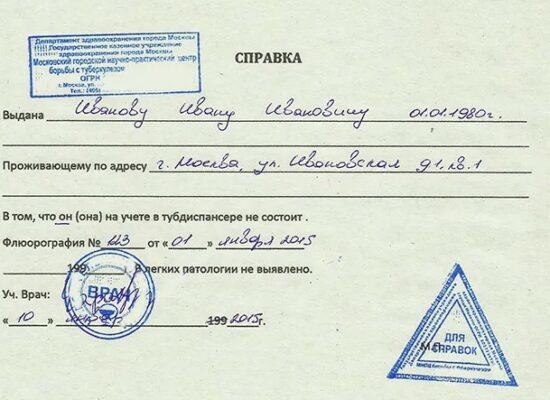 Департамент здравоохранения города Москвы
Государственное казенное учреждение
здравоохранения города Москвы
Московский городской научно-практический центр
борьбы с туберкулезом
ОГРН
г. Москва, ул.
Тел.: (495)
СПРАВКА
Выдана Иванову Ивану Ивановичу 01.01.1980г.
Проживающему по адресу г. Москва, ул. Ивановская д1, кв. 1
В том, что он (она) на учете в тубдиспансере не состоит .
Флюорография № 123 от «01» января 2015
199 г. В легких патологии не выявлено.
Уч. Врач:
ВРАЧ
«10» 199 2015г.
ДЛЯ
СПРАВОК
М.П.